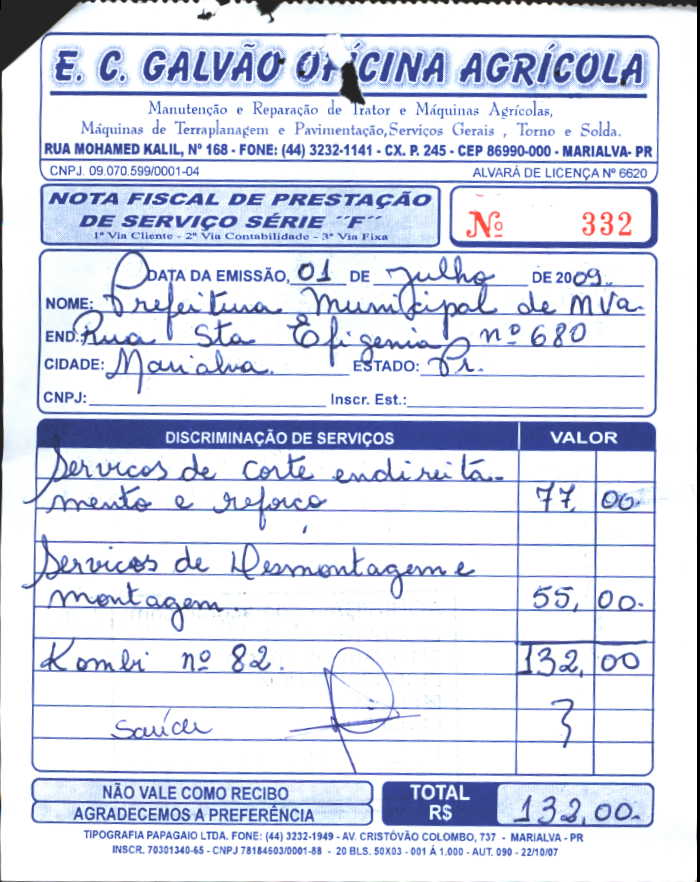 E. C. GALVÃO OFICINA AGRÍCOLA
Manutenção e Reparação de Trator e Máquinas Agrícolas,
Máquinas de Terraplanagem e Pavimentação,Serviços Gerais , Torno e Solda.
RUA MOHAMED KALIL, Nº 168 - FONE: (44) 3232-1141 - CX. P. 245 - CEP 86990-000 - MARIALVA- PR
CNPJ. 09.070.599/0001-04 ALVARÁ DE LICENÇA Nº 6620
NOTA FISCAL DE PRESTAÇÃO
DE SERVIÇO SÉRIE ´´F´´
1ª Via Cliente - 2ª Via Contabilidade - 3ª Via Fixa
Nº 332
DATA DA EMISSÃO, 01 DE Julho DE 2009.
NOME: Prefeitura Municipal de MVa.
END: Rua Sta Efigenia nº 680
CIDADE: Marialva. ESTADO: Pr.
CNPJ: Inscr. Est.:
DISCRIMINAÇÃO DE SERVIÇOS VALOR
Servicos de corte endireita
mento e reforço 77, 00.
Serviços de Desmontagem e
montagem. 55, 00.
Kombi nº 82. 132, 00
Saúde
NÃO VALE COMO RECIBO
AGRADECEMOS A PREFERÊNCIA
TOTAL R$ 132,00.
TIPOGRAFIA PAPAGAIO LTDA. FONE: (44) 3232-1949 - AV. CRISTÓVÃO COLOMBO, 737 - MARIALVA - PR
INSCR. 70301340-65 - CNPJ 78184603/0001-88 - 20 BLS. 50X03 - 001 Á 1.000 - AUT. 090 - 22/10/07